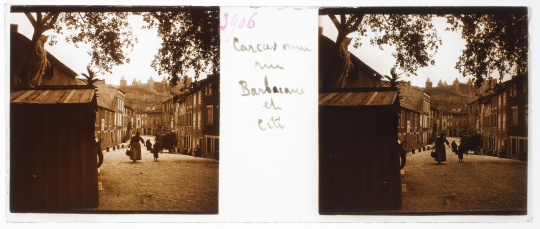 3906
Carcassonne
rue
Barbacane
et
Cité